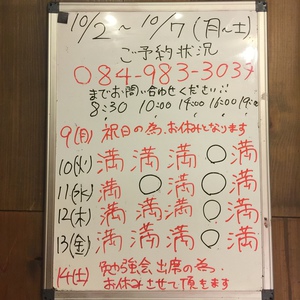 10/2 〜 10/7 (月〜土)
ご予約状況
084-983-3037
までお問い合わせください‼
8:30 10:00 14:00 16:00 19:00
9(月) 祝日の為、お休みとなります
10(火) 満 満 満 〇 満
11(水) 満 〇 満 〇 満
12(木) 満 満 満 〇 満
13(金) 満 満 満 〇 満
14(土) 勉強会出席の為、
お休みさせて頂きます